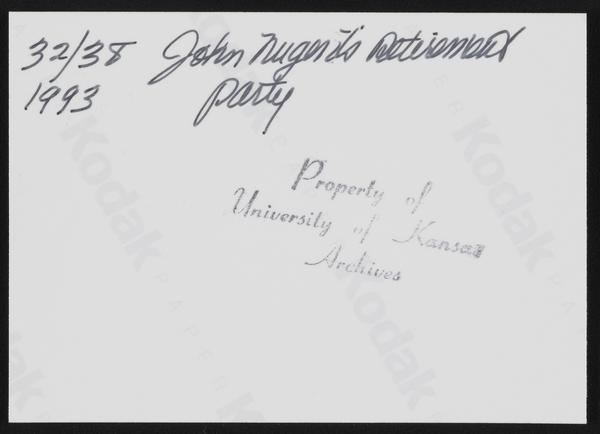 32/38 John Nugent's Retirement
1993 Party
Property of
University of Kansas
Archives
Kodak
Kodak
PAPER
Kodak
Kodak
Kodak